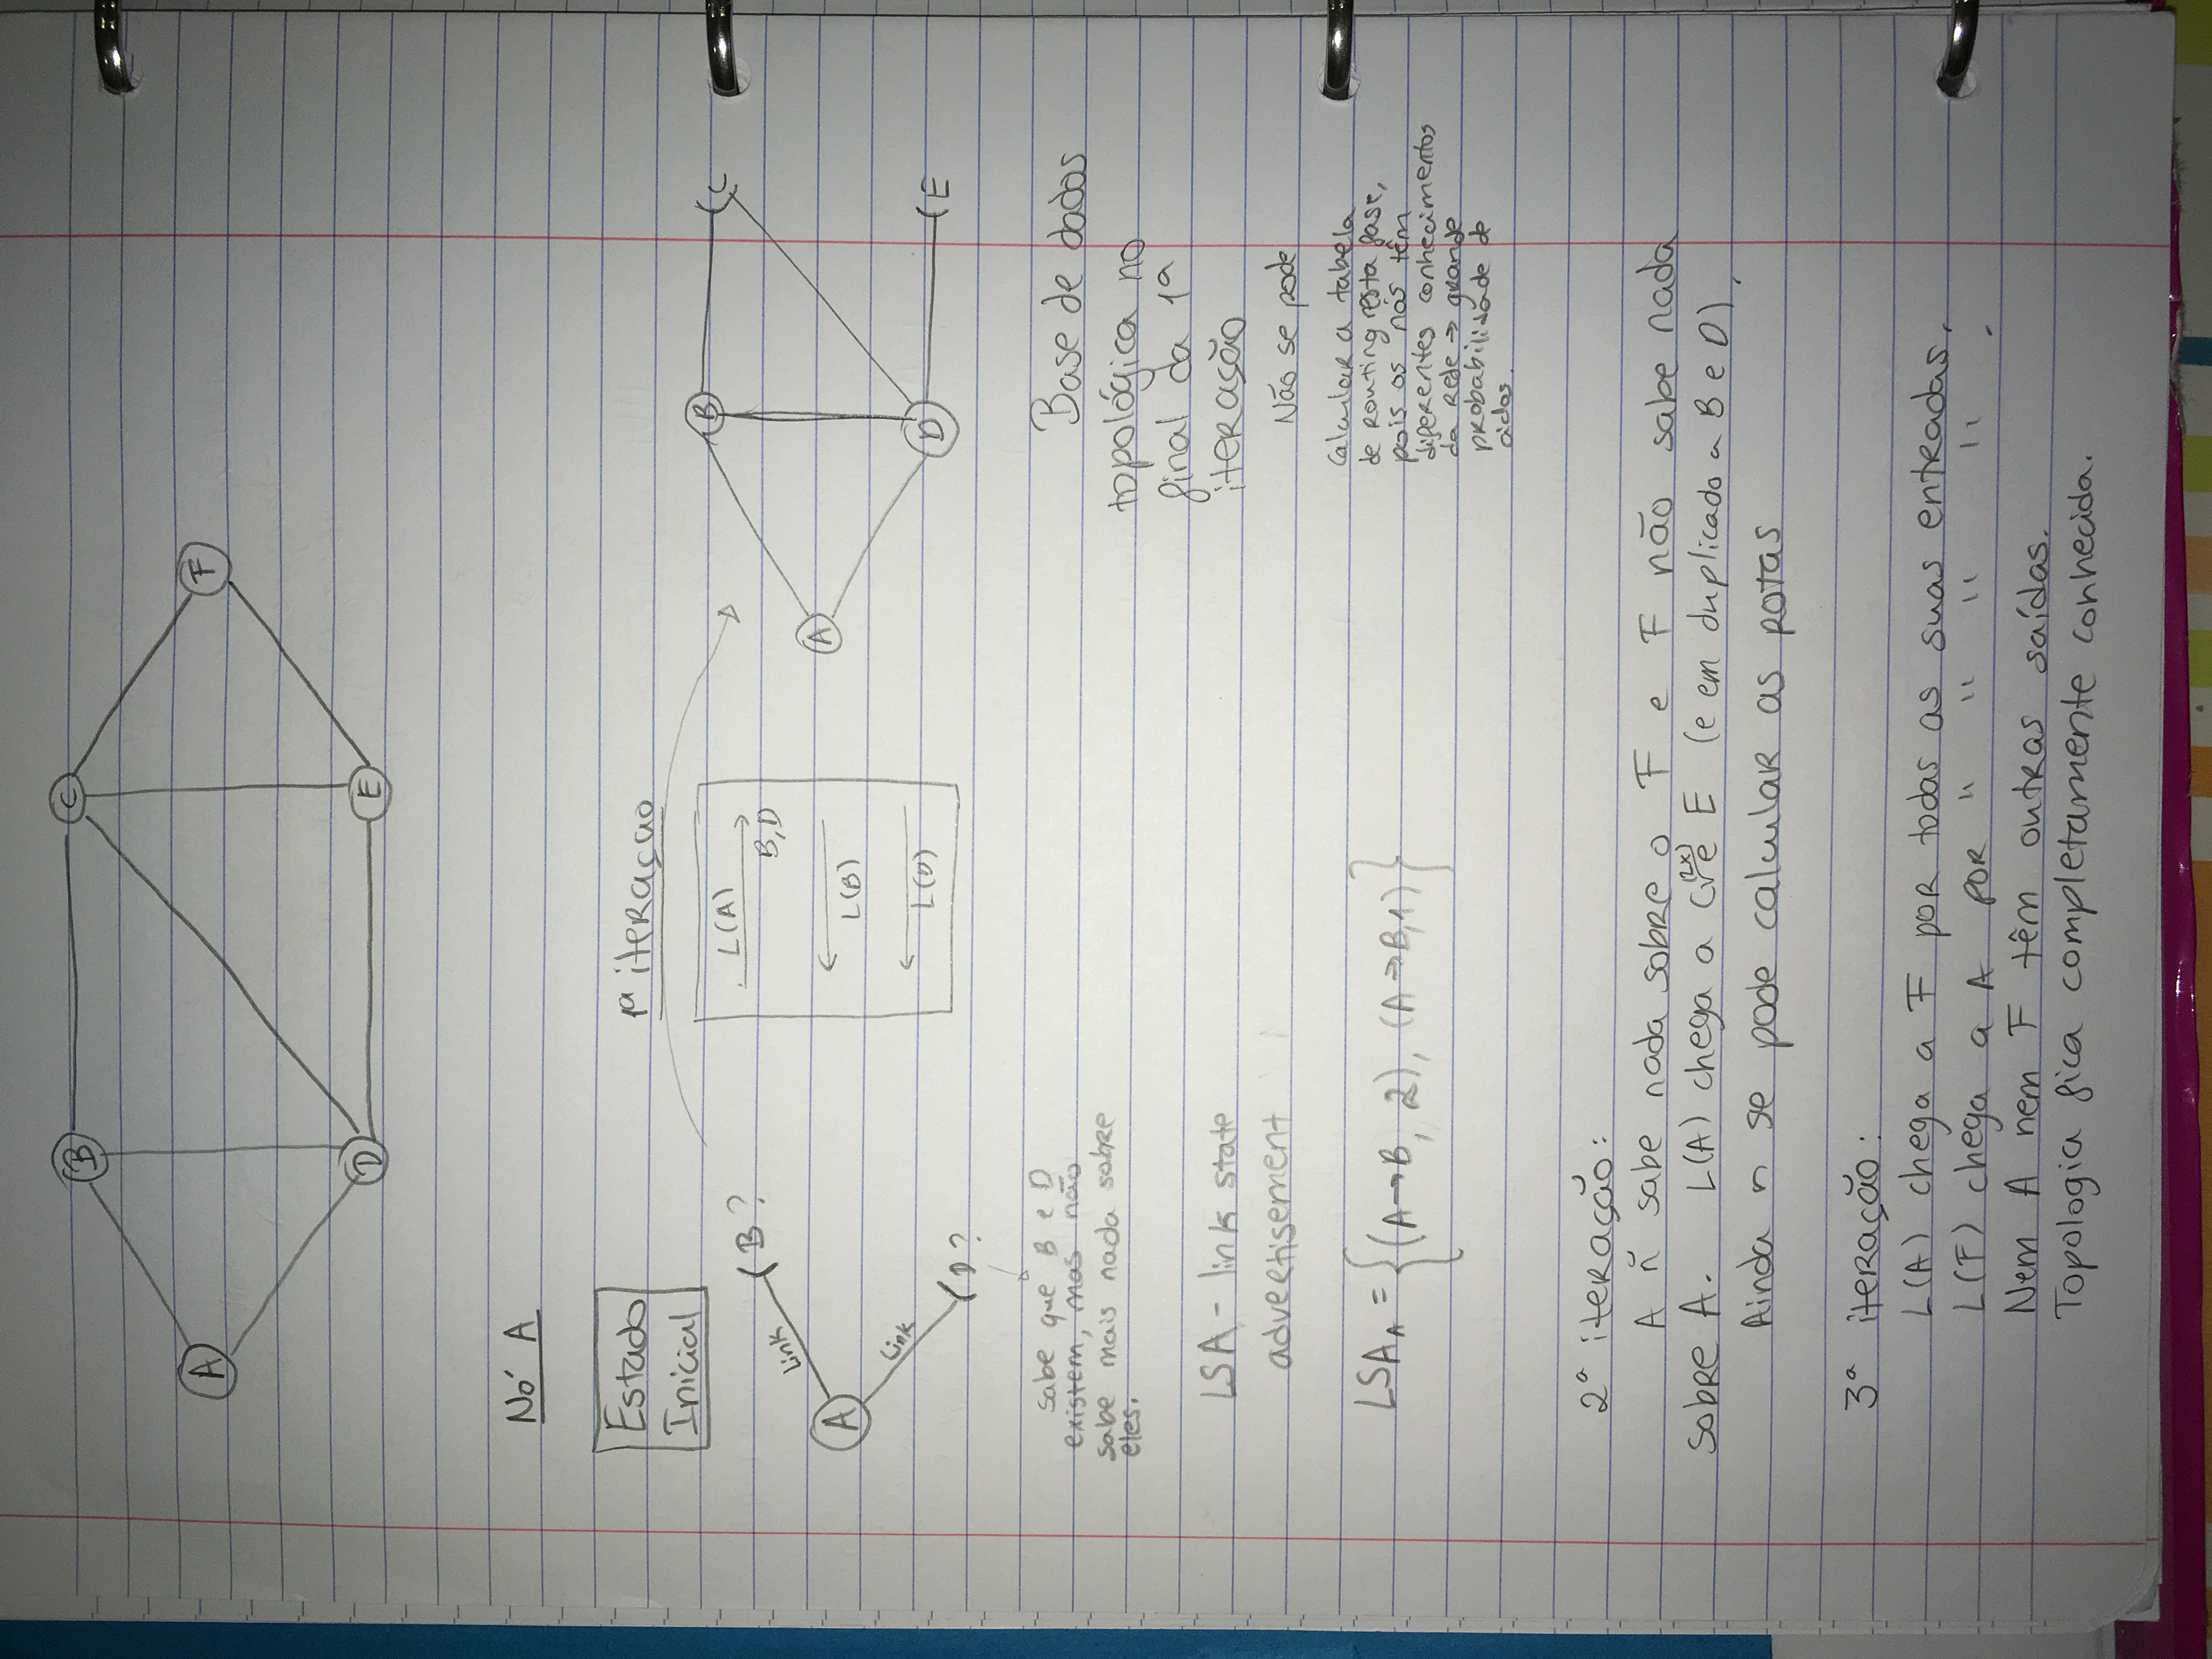 B
C
A
F
D
E
Nó A
Estado
Inicial
1ª iteraçao
Link
B?
A
Link
D?
L(A)
B,D
L(B)
L(D)
B
C
A
D
E
sabe que B e D
existem, mas não
sabe mais nada sobre
eles.
LSA - link state
advertisement
LSA_A = {(A→B, 2), (A→B,1)}
Base de dados
topológica no
final da 1ª
iteração
Não se pode
calcular a tabela
de routing nesta fase,
pois os nós têm
diferentes conhecimentos
da rede → grande
probabilidade de
ciclos.
2ª iteração:
A ñ sabe nada sobre o F e F não sabe nada
sobre A. L(A) chega a C (2x) e E (e em duplicado a B e D).
Ainda n se pode calcular as rotas
3ª iteração:
L(A) chega a F por todas as suas entradas.
L(F) chega a A por " " " " .
Nem A nem F têm outras saídas.
Topologia fica completamente conhecida.